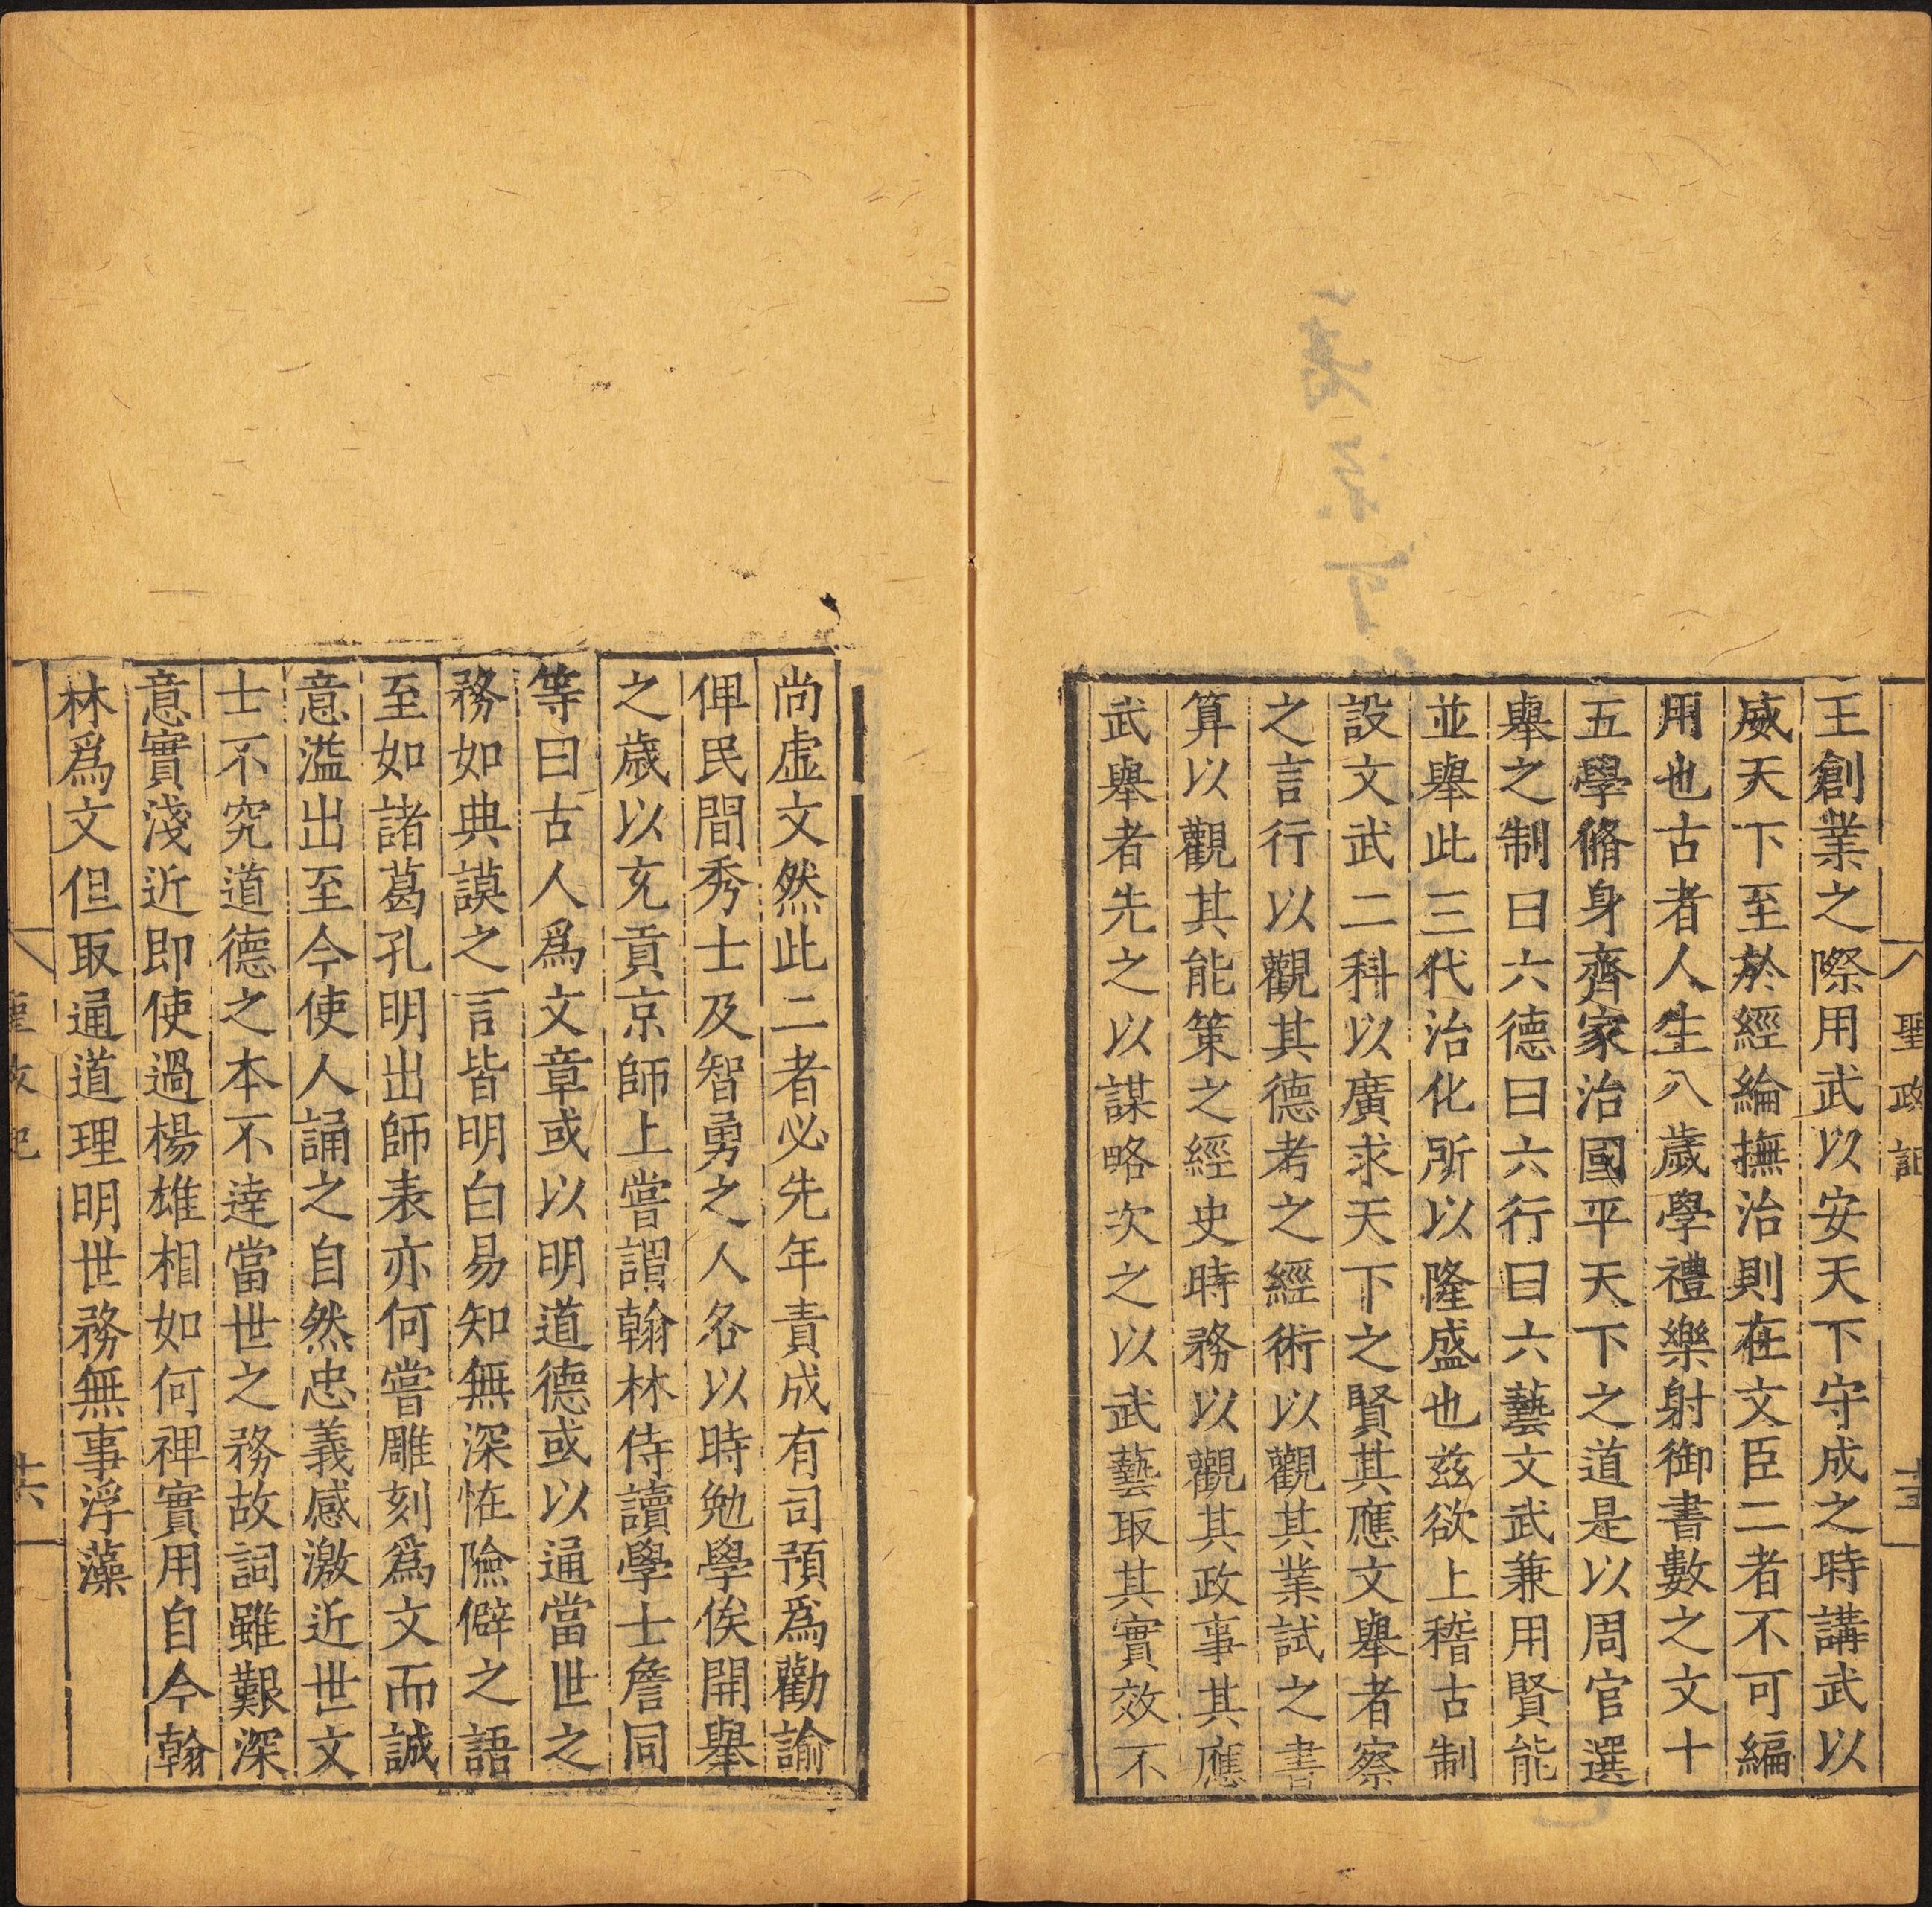 聖政記
王創業之際用武以安天下守成之時講武以
威天下至於經綸撫治則在文臣二者不可編
用也古者人生八歲學禮樂射御書數之文十
五學脩身齊家治國平天下之道是以周官選
舉之制曰六德曰六行曰六藝文武兼用賢能
並舉此三代治化所以隆盛也茲欲上稽古制
設文武二科以廣求天下之賢其應文舉者察
之言行以觀其德考之經術以觀其業試之書
算以觀其能策之經史時務以觀其政事其應
武舉者先之以謀略次之以武藝取其實效不
尚虛文然此二者必先年責成有司預爲勸諭
俾民間秀士及智勇之人各以時勉學俟開舉
之歲以充貢京師上嘗謂翰林侍讀學士詹同
等曰古人爲文章或以明道德或以通當世之
務如典謨之言皆明白易知無深恠險僻之語
至如諸葛孔明出師表亦何嘗雕刻爲文而誠
意溢出至今使人誦之自然忠義感激近世文
士不究道德之本不達當世之務故詞雖艱深
意實淺近即使過楊雄相如何裨實用自今翰
林爲文但取通道理明世務無事浮藻